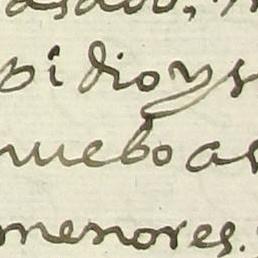 pidio y s
nuebo as
menores.